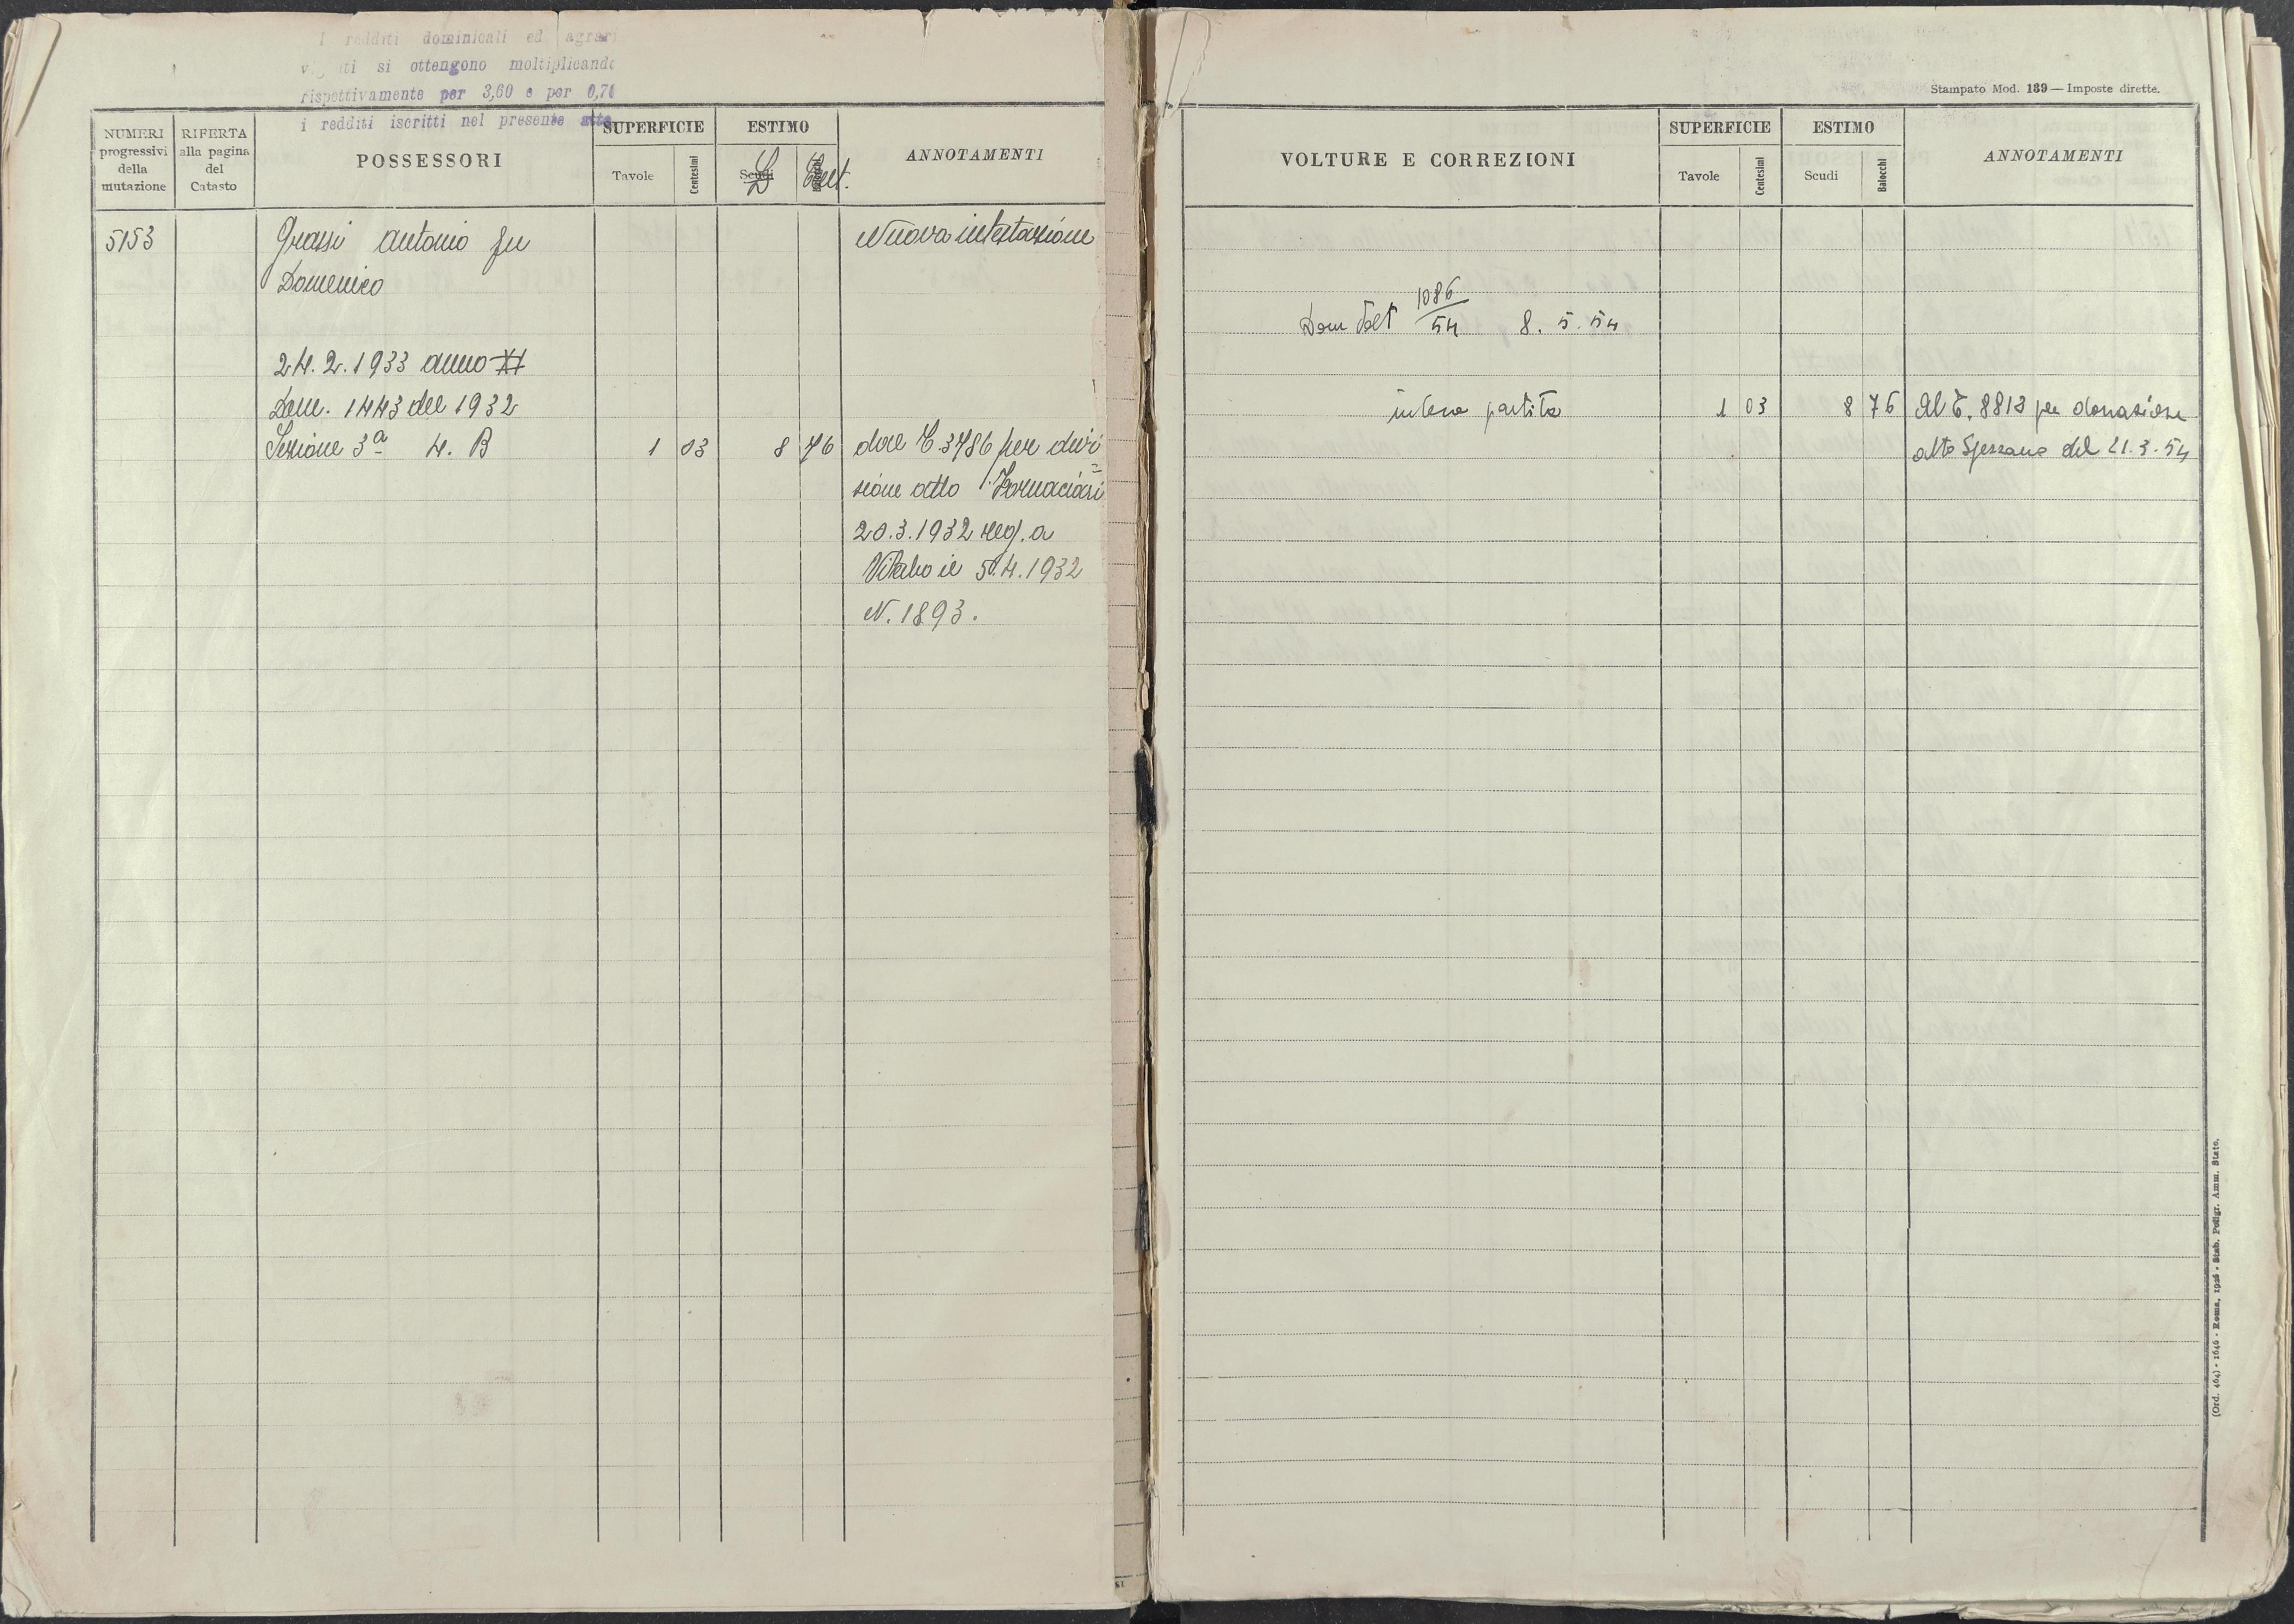 I redditi dominicali ed agrari
vigenti si ottengono moltiplicando
rispettivamente per 3,60 e per 0,76
i redditi iscritti nel presente atto
NUMERI progressivi della mutazione
RIFERTA alla pagina del Catasto
POSSESSORI
SUPERFICIE
Tavole
Centesimi
ESTIMO
Scudi
Cent.
ANNOTAMENTI
5153
Grassi Antonio fu
Domenico
Nuova intestazione
24.2.1933 anno XI
Dom. 1443 del 1932
Sezione 3ª 4. B 1 03 8 76 dal C. 3786 per divi
sione atto Fornaciari
20.3.1932 reg. a
il 5.4.1932
N. 1893.
Stampato Mod. 189 — Imposte dirette.
VOLTURE E CORREZIONI
SUPERFICIE
Tavole
Centesimi
ESTIMO
Scudi
Baiocchi
ANNOTAMENTI
Dom Volt 1086/54 8.5.54
intera partita 1 03 8 76 Al C. 8813 per donazione
atto Spezzano del 21.3.54
(Ord. 464) - 1646 - Roma, 1926 - Stab. Poligr. Amm. Stato.